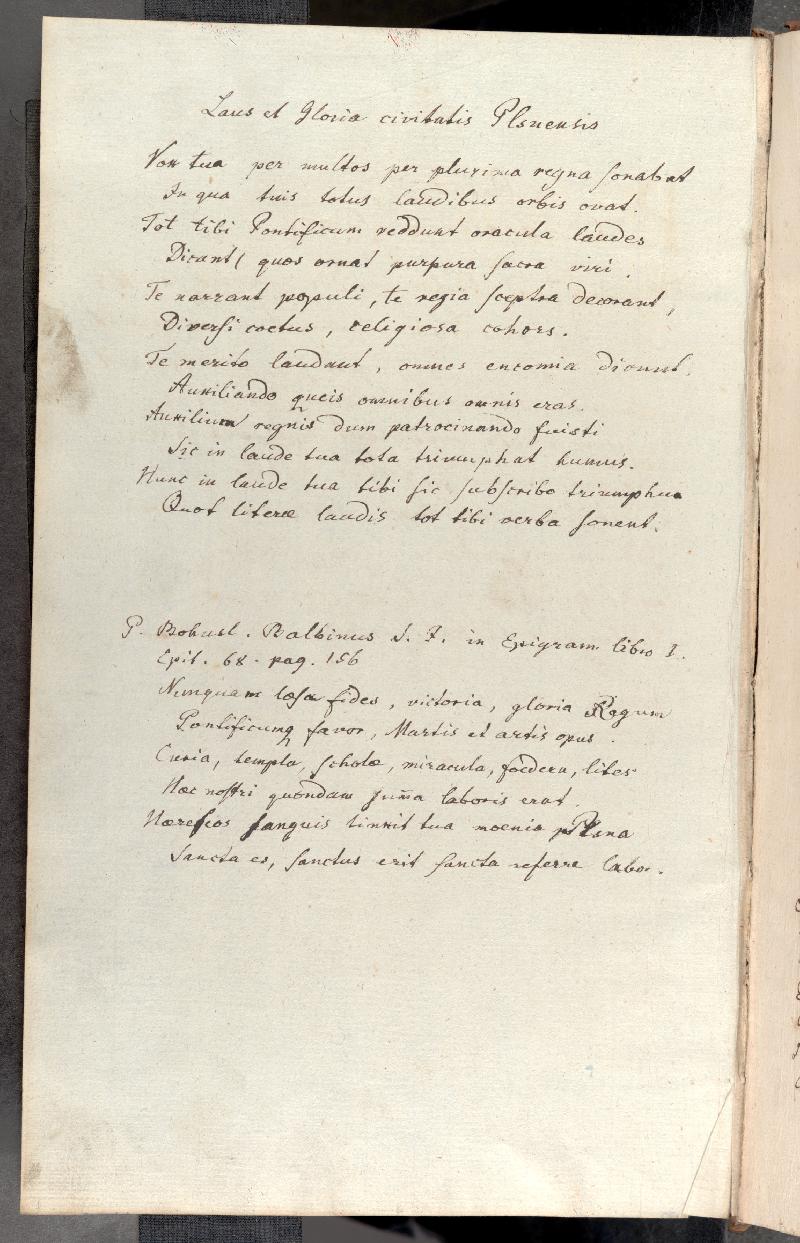 Laus et Gloria civitatis Plsnensis
Vox tua per multos per plurima regna sonabat
In qua tuis totus laudibus orbis ovat.
Tot tibi Pontificum reddunt oracula laudes
Dicant quos ornat purpura sacra viri.
Te narrant populi, te regia sceptra decorant,
Diversi coetus, religiosa cohors.
Te merito laudant, omnes encomia dicunt.
Auxiliando queis omnibus omnis eras.
Auxilium regnis dum patrocinando fuisti
Sic in laude tua tota triumphat humus.
Nunc in laude tua tibi sic subscribo triumphum
Quot literae laudis tot tibi verba sonent.
P. Bohusl. Balbinus S. J. in Epigram libro I.
Epit. 68. pag. 156
Nunquam laesa fides, victoria, gloria Regum
Pontificumq favor, Martis et artis opus.
Curia, templa, scholae, miracula, foedera, lites
Haec nostri quondam sum̄a laboris erat.
Haereseos sanguis tinxit tua moenia Plsna
Sancta es, sanctus erit sancta referre labor.